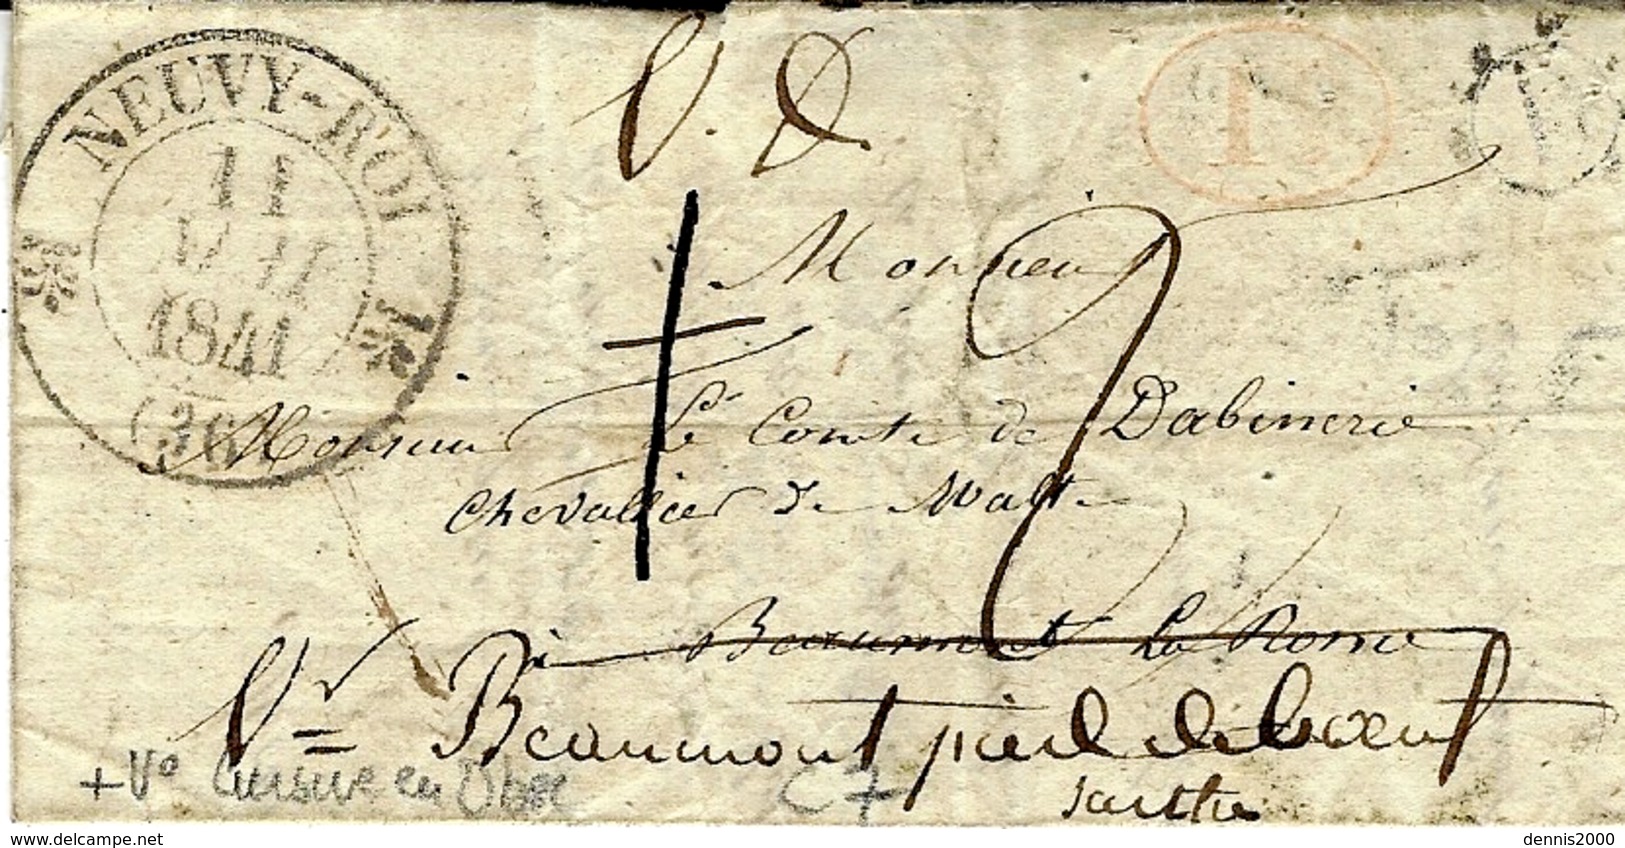 V. D
NEUVY-ROI
11
1841
(36)
1D
Monsieur
Monsieur Le Comte de Dabinerie
Chevallier de Malte
à Beaumont La Rome
Vr= Beaumont pied de boeuf
Sarthe
+ Vº Cursive en
C 7
delcampe.net
dennis2000